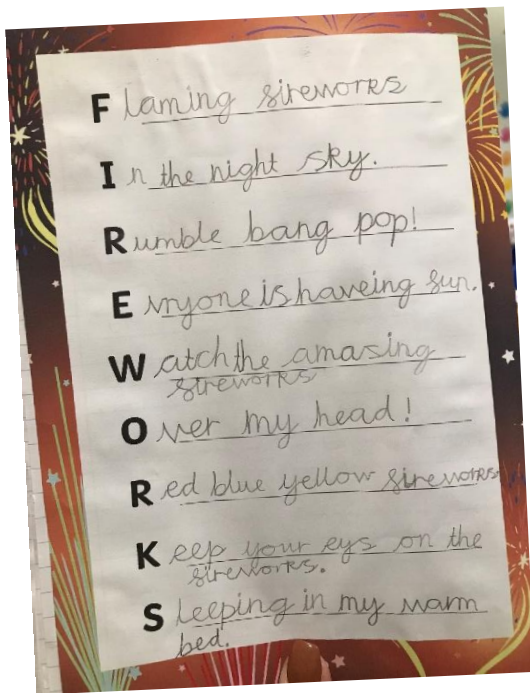 Flaming fireworks
In the night sky.
Rumble bang pop!
Evryone is haveing fun.
Watch the amazing
fireworks
Over my head!
Red blue yellow fireworks.
Keep your eys on the
fireworks.
Sleeping in my warm
bed.